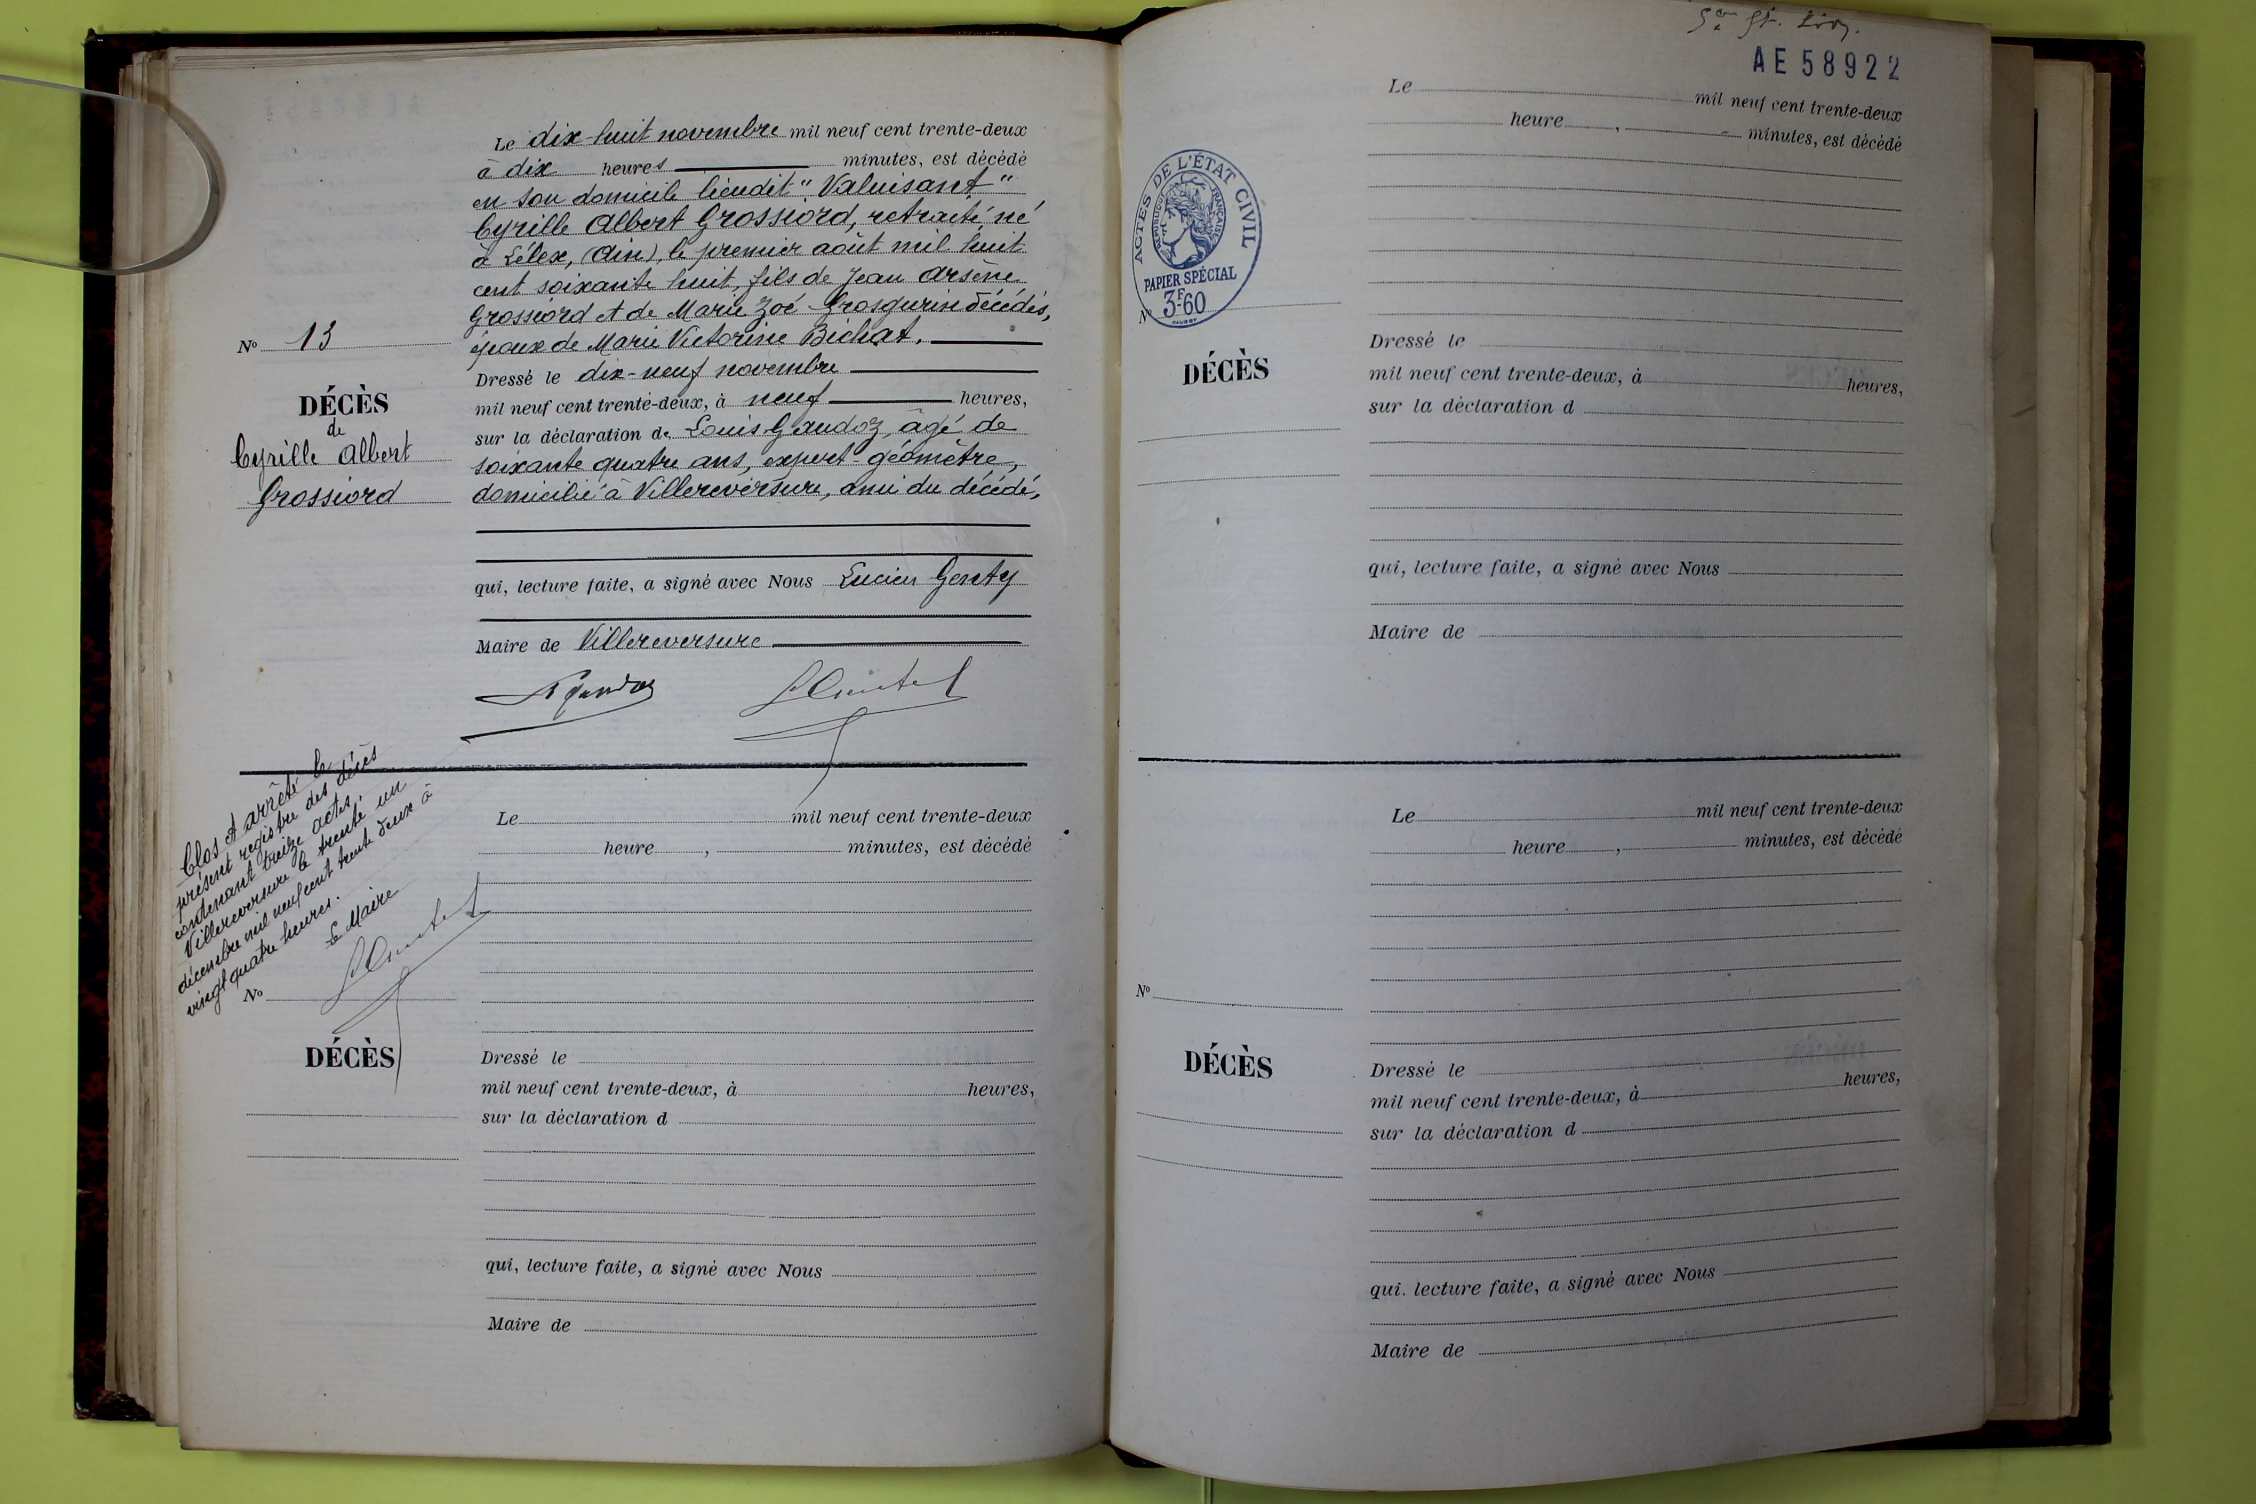 Le dix-huit novembre mil neuf cent trente-deux
à dix heures minutes, est décédé
en son domicile lieudit "Valuisant"
Cyrille Albert Grossiord, retraité, né
à Lélex, (Ain), le premier août mil huit
cent soixante huit, fils de Jean Arsène
Grossiord et de Marie Zoé Grosgurin décédés,
époux de Marie Victorine Bichat.
Nº 13
DÉCÈS
de
Cyrille Albert
Grossiord
Dressé le dix-neuf novembre
mil neuf cent trente-deux, à neuf heures,
sur la déclaration de Louis Gandoz, âgé de
soixante quatre ans, expert-géomètre,
domicilié à Villereversure, ami du décédé,
qui, lecture faite, a signé avec Nous Lucien
Maire de Villereversure
Clos et arrêté le
présent registre des décès
contenant treize actes.
Villereversure le trente un
décembre mil neuf cent trente deux à
vingt quatre heures.
Le Maire
Le mil neuf cent trente-deux
heure , minutes, est décédé
Nº
DÉCÈS
Dressé le
mil neuf cent trente-deux, à heures,
sur la déclaration d
qui, lecture faite, a signé avec Nous
Maire de
AE 58922
Le mil neuf cent trente-deux
heure , minutes, est décédé
ACTES DE L'ÉTAT CIVIL
RÉPUBLIQUE FRANÇAISE
PAPIER SPÉCIAL
3F60
Nº
DÉCÈS
Dressé le
mil neuf cent trente-deux, à heures,
sur la déclaration d
qui, lecture faite, a signé avec Nous
Maire de
Le mil neuf cent trente-deux
heure , minutes, est décédé
Nº
DÉCÈS
Dressé le
mil neuf cent trente-deux, à heures,
sur la déclaration d
qui. lecture faite, a signé avec Nous
Maire de